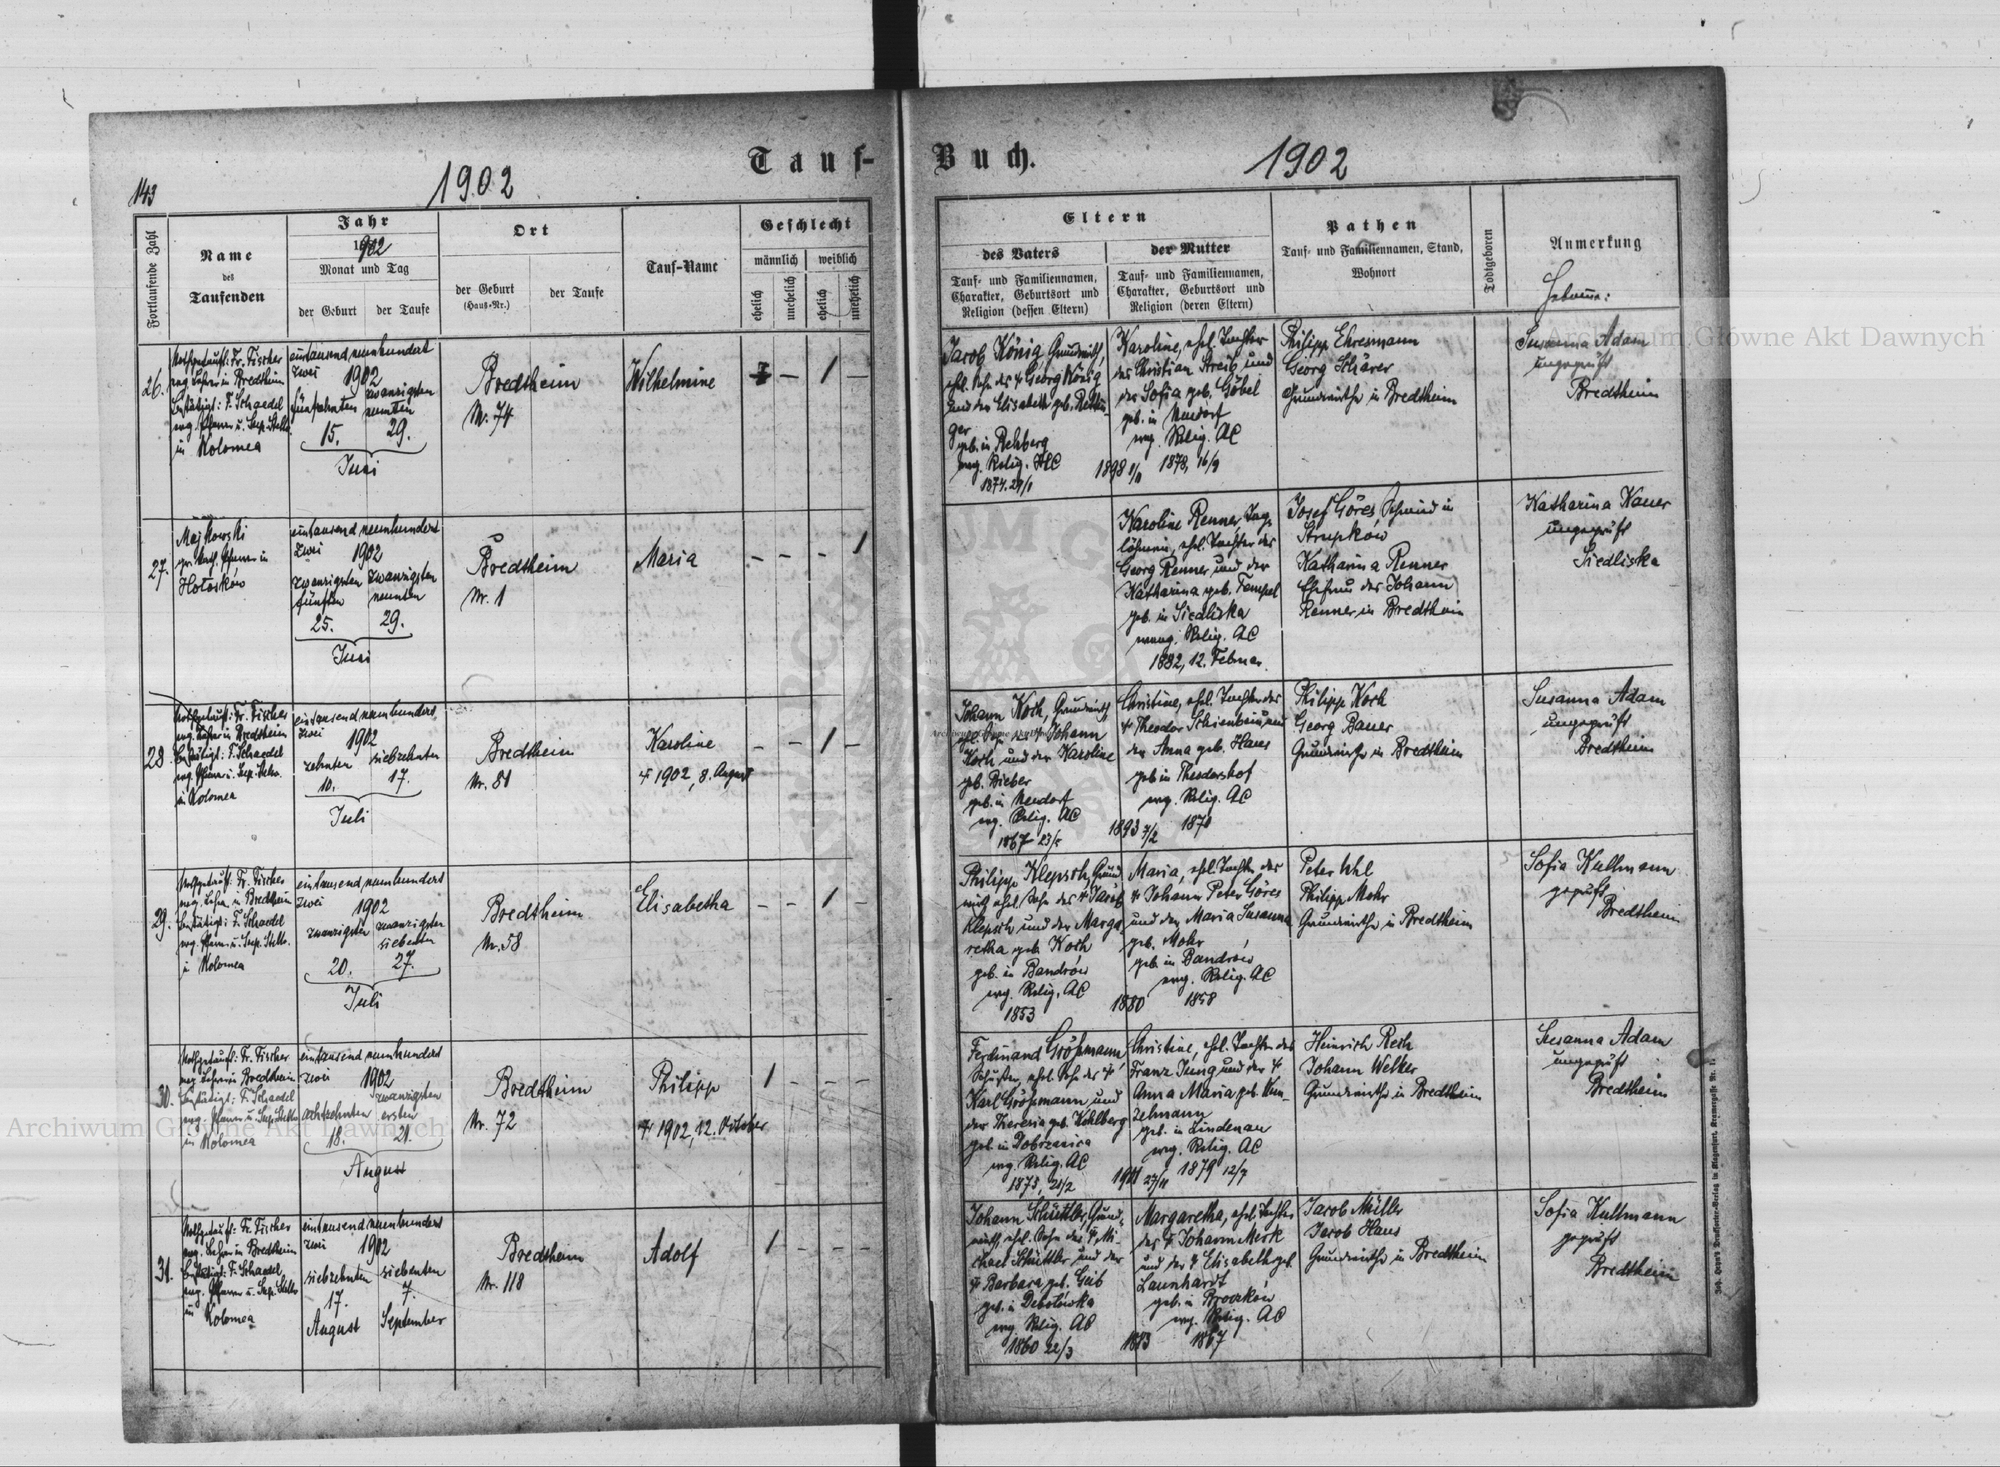 Tauf-
Buch.
143
1902
1902
Fortlaufende Zahl
Name
des
Taufenden
Jahr
1902
Monat und Tag
der Geburt
der Taufe
Ort
der Geburt
(Hauß-Nr.)
der Taufe
Tauf-Name
Geschlecht
männlich
weiblich
ehelich
unehelich
ehelich
unehelich
Eltern
des Vaters
Tauf- und Familiennamen,
Charakter, Geburtsort und
Religion (dessen Eltern)
der Mutter
Tauf- und Familiennamen,
Charakter, Geburtsort und
Religion (deren Eltern)
Pathen
Tauf- und Familiennamen, Stand,
Wohnort
Todtgeboren
Anmerkung
Hebamme:
26.
Nothgetauft: Fr. Fischer
evg. Lehrer in Bredtheim
Bestätigt: F. Schaedel
evg. Pfarrer u. Sup. Stellv.
in Kolomea
eintausend neunhundert
zwei 1902
fünfzehnten
15.
zwanzigsten
neunten
29.
Juni
Bredtheim
Nr. 74
Wilhelmine
– 1 –
Jacob König Grundwirth,
ehl. Sohn des † Georg König
und der Elisabeth geb. Rettin-
ger
geb. in Rehberg
evg. Relig. HC
1874. 29/1
1898 1/11
Karoline, ehl. Tochter
des Christian Streib und
der Sofia geb. Göbel
geb. in Neudorf
evg. Relig. AC
1878, 16/9
Philipp Ehresmann
Georg Schärer
Grundwirthe in Bredtheim
Susanna Adam
ungeprüft
Bredtheim
27.
Majkowski
gr. kath. Pfarrer in
Hołosków
eintausend neunhundert
zwei 1902
zwanzigsten
fünften
25.
zwanzigsten
neunten
29.
Juni
Bredtheim
Nr. 1
Maria
– – – 1
Karoline Renner, Tag-
löhnerin, ehl. Tochter des
Georg Renner und der
Katharina geb. Tempel
geb. in Siedliska
evang. Relig. AC
1882, 12. Februar
Josef Göres Schmied in
Strupków
Katharina Renner
Ehefrau des Johann
Renner in Bredtheim
Katharina Kauer
ungeprüft
Siedliska
28
Nothgetauft: Fr. Fischer
evg. Lehrer in Bredtheim
Bestätigt: F. Schaedel
evg. Pfarrer u. Sup. Stellv.
in Kolomea
eintausend neunhundert
zwei 1902
zehnten
10.
siebzehnten
17.
Juli
Bredtheim
Nr. 81
Karoline
† 1902, 8. August
– – 1 –
Johann Koch, Grundwirth,
ehl. Sohn des † Johann
Koch und der Karoline
geb. Bieber
geb. in Neudorf
evg. Relig. AC
1867 23/5
1893 7/2
Christine, ehl. Tochter des
† Theodor Schienbein und
der Anna geb. Haus
geb in Theodorshof
evg. Relig. AC
1871
Philipp Koch
Georg Bauer
Grundwirthe in Bredtheim
Susanna Adam
ungeprüft
Bredtheim
29.
Nothgetauft: Fr. Fischer
evg. Lehrer in Bredtheim
Bestätigt: F. Schaedel
evg. Pfarrer u. Sup. Stellv.
in Kolomea
eintausend neunhundert
zwei 1902
zwanzigsten
20.
zwanzigsten
siebenten
27.
Juli
Bredtheim
Nr. 58
Elisabetha
– – 1 –
Philipp Klepsch, Grund
wirth ehl. Sohn des † Jacob
Klepsch und der Marga
retha geb. Koch
geb. in Bandrów
evg. Relig. AC
1853
1880
Maria, ehl. Tochter des
† Johann Peter Göres
und der Maria Susanna
geb. Mohr
geb. in Bandrów
evg. Relig. AC
1858
Peter Uhl
Philipp Mohr
Grundwirthe in Bredtheim
Sofia Kullmann
geprüft
Bredtheim
30.
Nothgetauft: Fr. Fischer
evg. Lehrer in Bredtheim
Bestätigt: F. Schaedel
evg. Pfarrer u. Sup. Stellv.
in Kolomea
eintausend neunhundert
zwei 1902
achtzehnten
18.
zwanzigsten
ersten
21.
August
Bredtheim
Nr. 72
Philipp
† 1902, 12. October
1 – – –
Ferdinand Größmann
Schuster, ehl. Sohn des †
Karl Größmann und
der Theresia geb. Kohlberg
geb. in Dobrzanica
evg. Relig. AC
1873, 21/2
1901 27/11
Christine, ehl. Tochter des
Franz Jung und der †
Anna Maria geb. Kun-
zelmann
geb. in Lindenau
evg. Relig. AC
1879 12/7
Heinrich Rech
Johann Welker
Grundwirthe in Bredtheim
Susanna Adam
ungeprüft
Bredtheim
31.
Nothgetauft: Fr. Fischer
evg. Lehrer in Bredtheim
Bestätigt: F. Schaedel
evg. Pfarrer u. Sup. Stellv.
in Kolomea
eintausend neunhundert
zwei 1902
siebzehnten
17.
August
siebenten
7.
September
Bredtheim
Nr. 118
Adolf
1 – – –
Johann Schüttler, Grund-
wirth, ehl. Sohn des † Mi-
chael Schüttler und der
† Barbara geb. Geib
geb. in Debolówka
evg. Relig. AC
1860 22/3
Margaretha, ehl. Tochter
des † Johann Merk
und der † Elisabeth geb.
Launhardt
geb. in Broczków
evg. Relig. AC
1867
Jacob Müller
Jacob Haus
Grundwirthe in Bredtheim
Sofia Kullmann
geprüft
Bredtheim
Archiwum Główne Akt Dawnych
Archiwum Główne Akt Dawnych